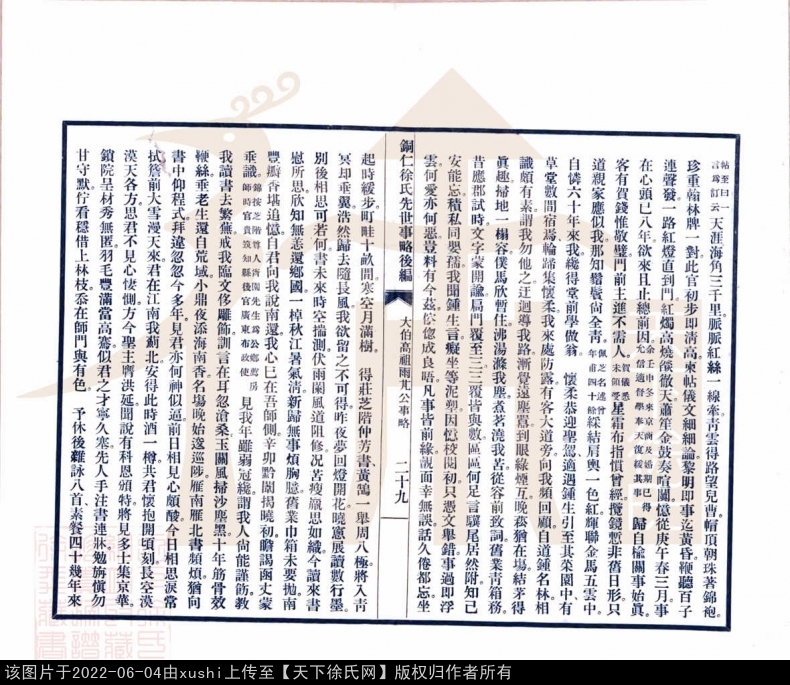 帖至曰一
言爲訂云
天涯海角三千里。脈脈紅絲一線牽。青雲得路望兒曹。帽頂朝珠著錦袍。
珍重翰林牌一對。此官初步即清高。柬帖儀文細細論。黎明即事迄黃昏。鞭聽百子
連聲發。一路紅燈直到門。紅燭高燒燄徹天。蕭笙金鼓奏喧闐。憶從庚午春三月。事
在心頭已八年。欲來且止總前因。
歸自楡關事始眞。
客有賀錢惟敬璧。門前主進不需人。
星霜布指慣曾經。攬鏡暫非舊日形。只
道親家應似我。那知鬚鬢尙全青。
綵結肩輿一色紅。輝聯金馬五雲中。
自憐六十年來我。纔得堂前學做翁。
懷柔恭迎聖駕。適遇鍾生引至其菜園中。有
草堂數間宿焉
輪蹄集懷柔。我來處防露。有客大道旁。向我頻回顧。自道鍾名林。相
識頗有素。謂我勿他之。迂迴導我路。漸覺遠塵囂。到眼綠煙互。晚菘猶在場。結茅得
眞趣。掃地一榻容。僕馬欣暫住。沸湯滌我塵。煮茗澆我苦。從容前致詞。舊業青箱務。
昔應郡試時。文字蒙開諭。扃門覆至三。三覆皆與數。區區何足言。驥尾居然附。知己
安能忘。積私同嬰孺。我聞鍾生言。癡坐等泥塑。因憶校閱初。只憑文舉錯。事過即浮
雲。何愛亦何惡。豈料有今茲。倥偬成良晤。凡事皆前緣。覿面幸無誤。話久倦都忘。坐
銅仁徐氏先世事略後編
大伯高祖雨芃公事略
二十九
起時緩步。町畦十畝間。寒空月滿樹。
得莊芝階仲芳書
黃鵠一舉周八極。將入青
冥卻垂翼。浩然歸去隨長風。我欲留之不可得。昨夜夢回燈開花。曉窻展讀數行墨。
別後相思可若何。書未來時空揣測。伏雨闌風道阻修。况苦痩羸思如織。今讀來書
慰所思。欣知無恙還鄉國。一棹秋江暑氣清。新歸無事煩胸臆。舊業巾箱未要拋。南
豐瓣香堪追憶。自君向我說南還。我心已在吾師側。辛卯黔闈揭曉初。瞻謁函丈蒙
垂識
見我年雖弱冠纔。謂我人尙能謹飭。敎
我讀書去繁蕪。戒我臨文侈雕飾。訓言在耳忽滄桑。玉關風掃沙塵黑。十年筋骨效
鞭絲。垂老生還自荒域。小鼎夜添海南香。名場晚始逡巡陟。雁南雁北書頻煩。猶向
書中仰程式。拜違忽忽今多年。見君亦何神似逼。前日相見心頗酸。今日相思淚常
拭。簷前大雪漫天來。君在江南我薊北。安得此時酒一樽。共君懷抱開頃刻。長空漠
漠天各方。思君不見心悽惻。方今聖主膺洪延。聞說有科恩頒特。將見多士集京華。
鎖院呈材秀無匿。羽毛豐滿當高騫。似君之才寧久塞。先人手注書連牀。勉旃愼勿
甘守默。佇看穩借上林枝。忝在師門與有色。
予休後雜詠八首
素餐四十幾年來。
該图片于2022-06-04由xushi上传至【天下徐氏网】版权归作者所有